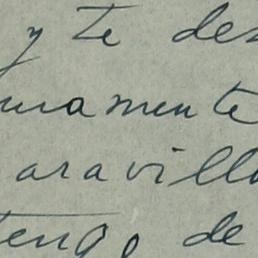 y te des
uramente
aravillo
tengo de